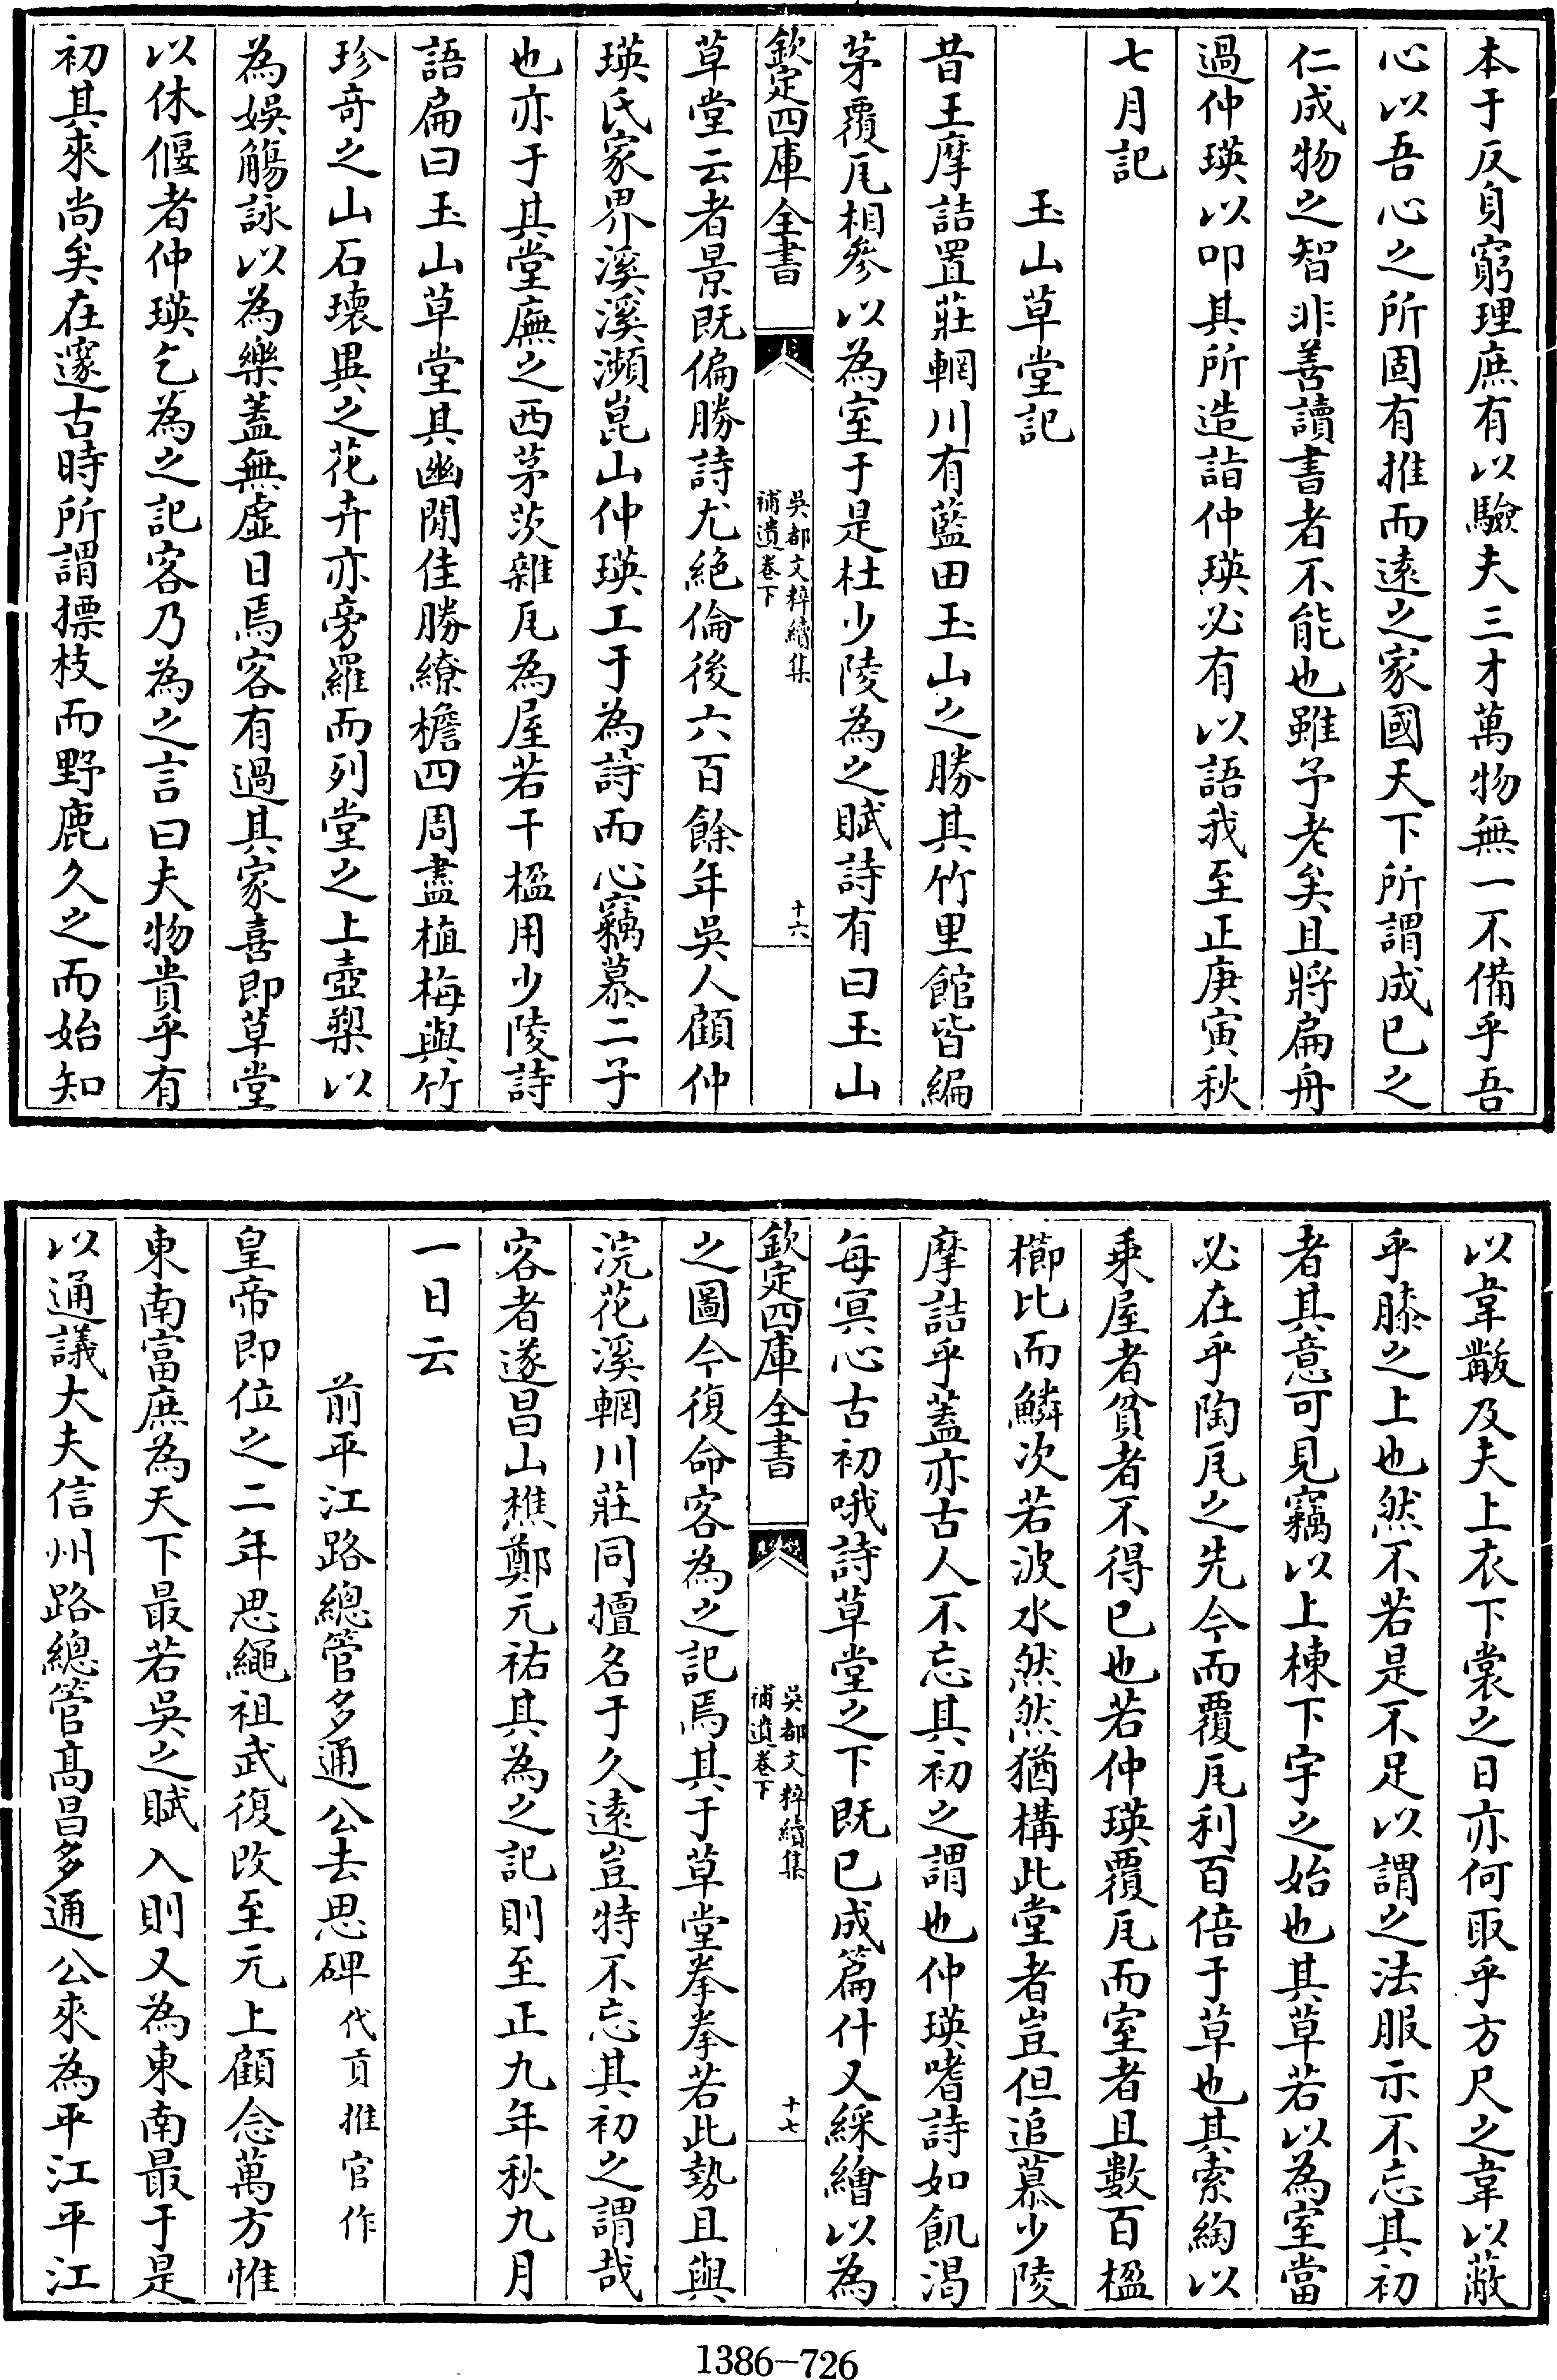 本于反身窮理庶有以驗夫三才萬物無一不備乎吾
心以吾心之所固有推而遠之家國天下所謂成已之
仁成物之智非善讀書者不能也雖予老矣且將扁舟
過仲瑛以叩其所造詣仲瑛必有以語我至正庚寅秋
七月記
玉山草堂記
昔王摩詰置莊輞川有藍田玉山之勝其竹里館皆編
茅覆瓦相參以為室于是杜少陵為之賦詩有曰玉山
欽定四庫全書
吳都文粹續集
補遺卷下
十六
草堂云者景既偏勝詩尤絶倫後六百餘年吳人顧仲
瑛氏家界溪溪瀕崑山仲瑛工于為詩而心竊慕二子
也亦于其堂廡之西茅茨雜瓦為屋若干楹用少陵詩
語扁曰玉山草堂其幽閒佳勝繚檐四周盡植梅與竹
珍奇之山石瓌異之花卉亦旁羅而列堂之上壺槊以
為娛觴詠以為樂蓋無虛日焉客有過其家喜即草堂
以休偃者仲瑛乞為之記客乃為之言曰夫物貴乎有
初其來尚矣在邃古時所謂摽枝而野鹿久之而始知
以韋黻及夫上衣下裳之日亦何取乎方尺之韋以蔽
乎膝之上也然不若是不足以謂之法服示不忘其初
者其意可見竊以上棟下宇之始也其草若以為室當
必在乎陶瓦之先今而覆瓦利百倍于草也其索綯以
乘屋者貧者不得已也若仲瑛覆瓦而室者且數百楹
櫛比而鱗次若波水然然猶構此堂者豈但追慕少陵
摩詰乎蓋亦古人不忘其初之謂也仲瑛嗜詩如飢渴
每冥心古初哦詩草堂之下既已成篇什又綵繪以為
欽定四庫全書
吳都文粹續集
補遺卷下
十七
之圖今復命客為之記焉其于草堂拳拳若此勢且與
浣花溪輞川莊同擅名于久遠豈特不忘其初之謂哉
客者遂昌山樵鄭元祐其為之記則至正九年秋九月
一日云
前平江路總管多通公去思碑代貢推官作
皇帝即位之二年思繩祖武復改至元上顧念萬方惟
東南富庶為天下最若吳之賦入則又為東南最于是
以通議大夫信州路總管高昌多通公來為平江平江
1386-726